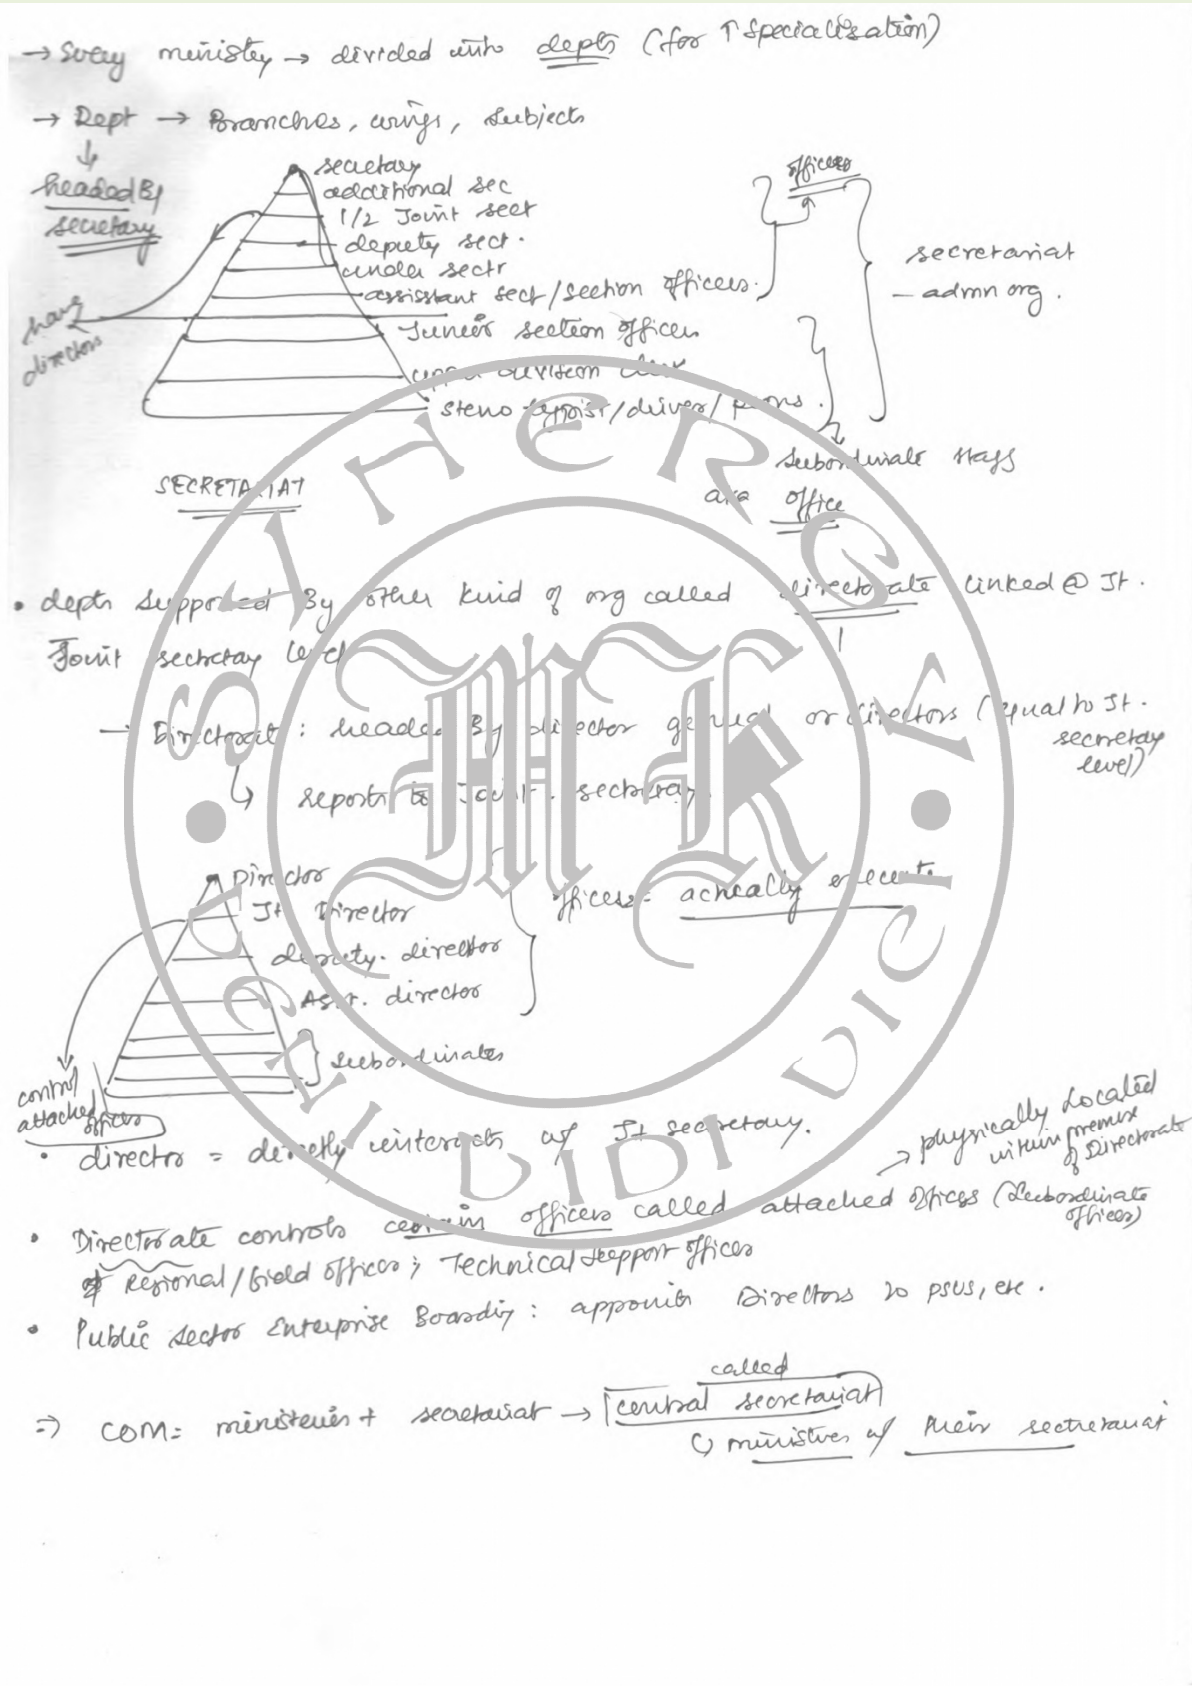 → Every ministry → divided into depts (for ↑ specialisation)
→ Dept → Branches, wings, subjects
↓
headed By
secretary
secretary
additional sec
1/2 Joint sect
deputy sect.
under sectr
assistant sect/section officers.
Junior section officer
upper division
steno typist/driver/peons.
have
directors
officers
secretariat
- admn org.
subordinate staff
aka office
SECRETARIAT
• depts supported By other kind of org called directorate linked @ Jt.
Joint secretary level
→ Directorate: headed By director general or directors (equal to Jt.
secretary
level)
↳ reports to Joint secretary
Director
Jt Director
deputy. director
Asst. director
officers = actually execute
subordinates
control
attached
offices
• director = directly interacts w/ Jt secretary.
→ physically located
within premise
of Directorate
• Directorate controls certain officers called attached offices (subordinate
offices)
Regional/field offices; Technical support offices
• Public sector Enterprise Boarding: appoints Directors to PSUs, etc.
called
⇒ COM = ministers + secretariat → central secretariat
↳ ministries w/ their secretariat
SATHERGE
MK
VIDI VICI